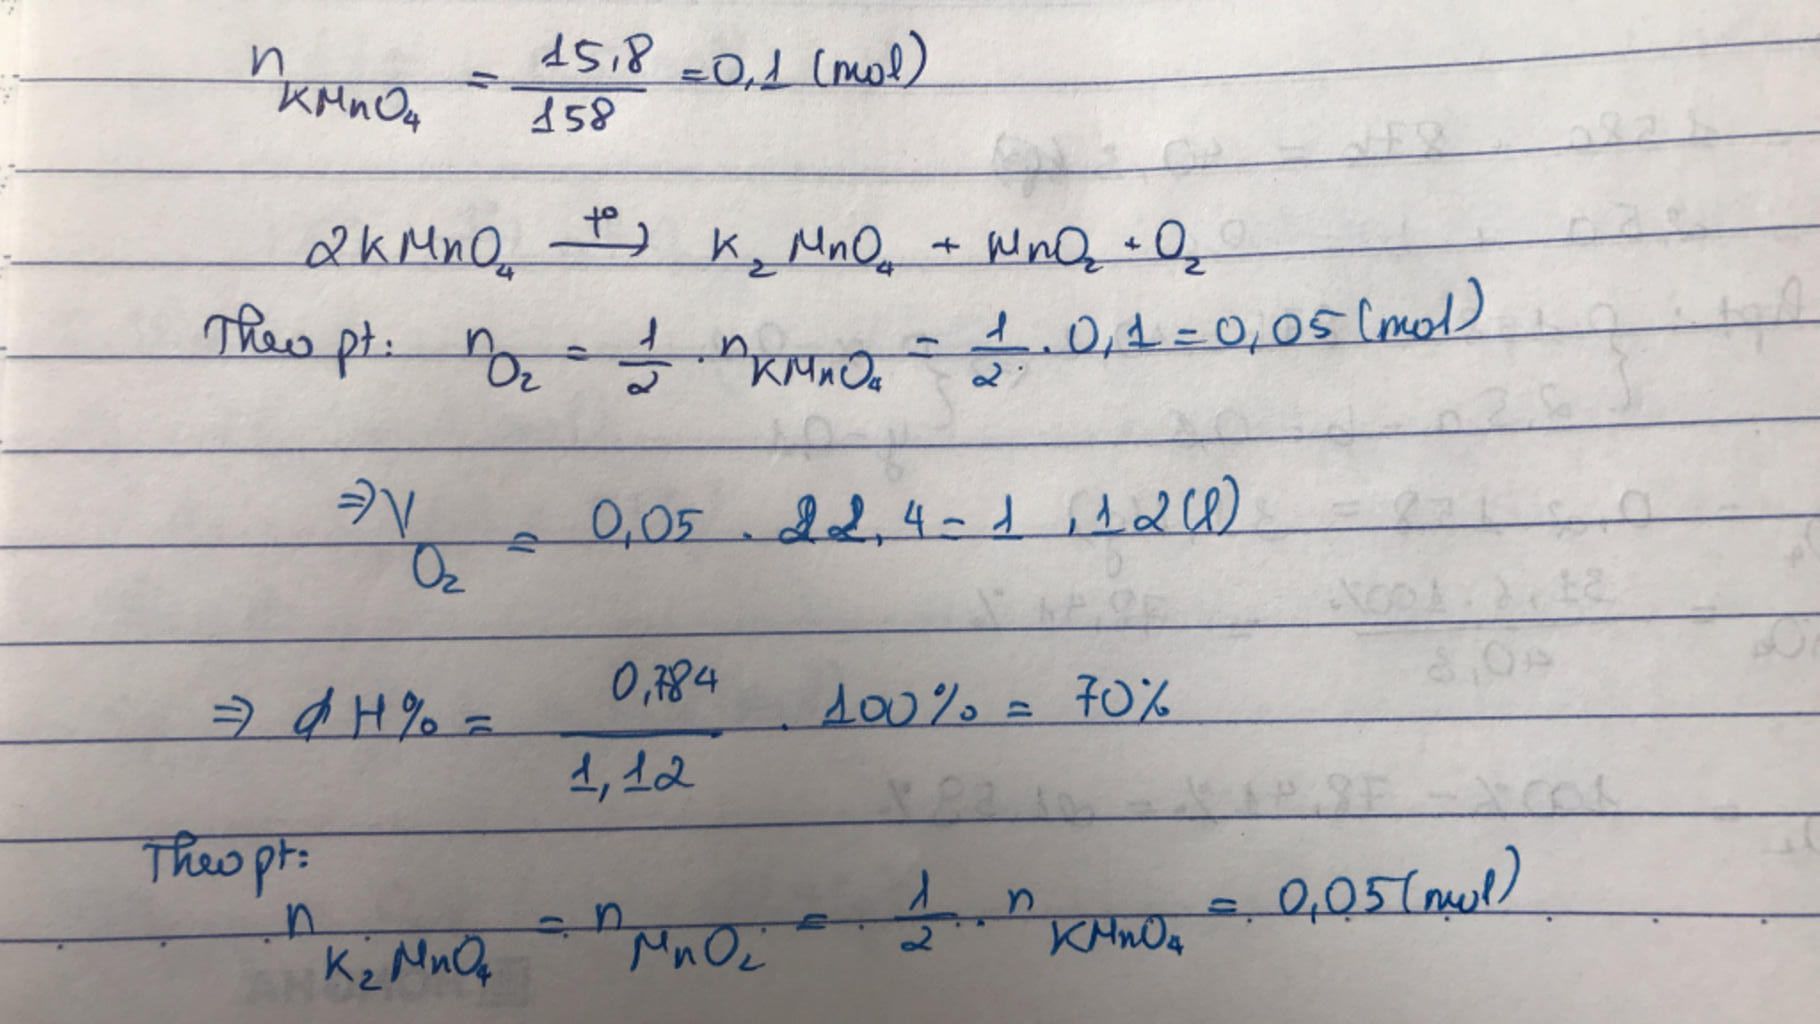 n KMnO₄ = 15,8 / 158 = 0,1 (mol)
2KMnO₄ t° → K₂MnO₄ + MnO₂ + O₂
Theo pt: n O₂ = 1/2 . n KMnO₄ = 1/2 . 0,1 = 0,05 (mol)
⇒ V O₂ = 0,05 . 22,4 = 1,12 (l)
⇒ H% = 0,784 / 1,12 . 100% = 70%
Theo pt:
n K₂MnO₄ = n MnO₂ = 1/2 . n KMnO₄ = 0,05 (mol)